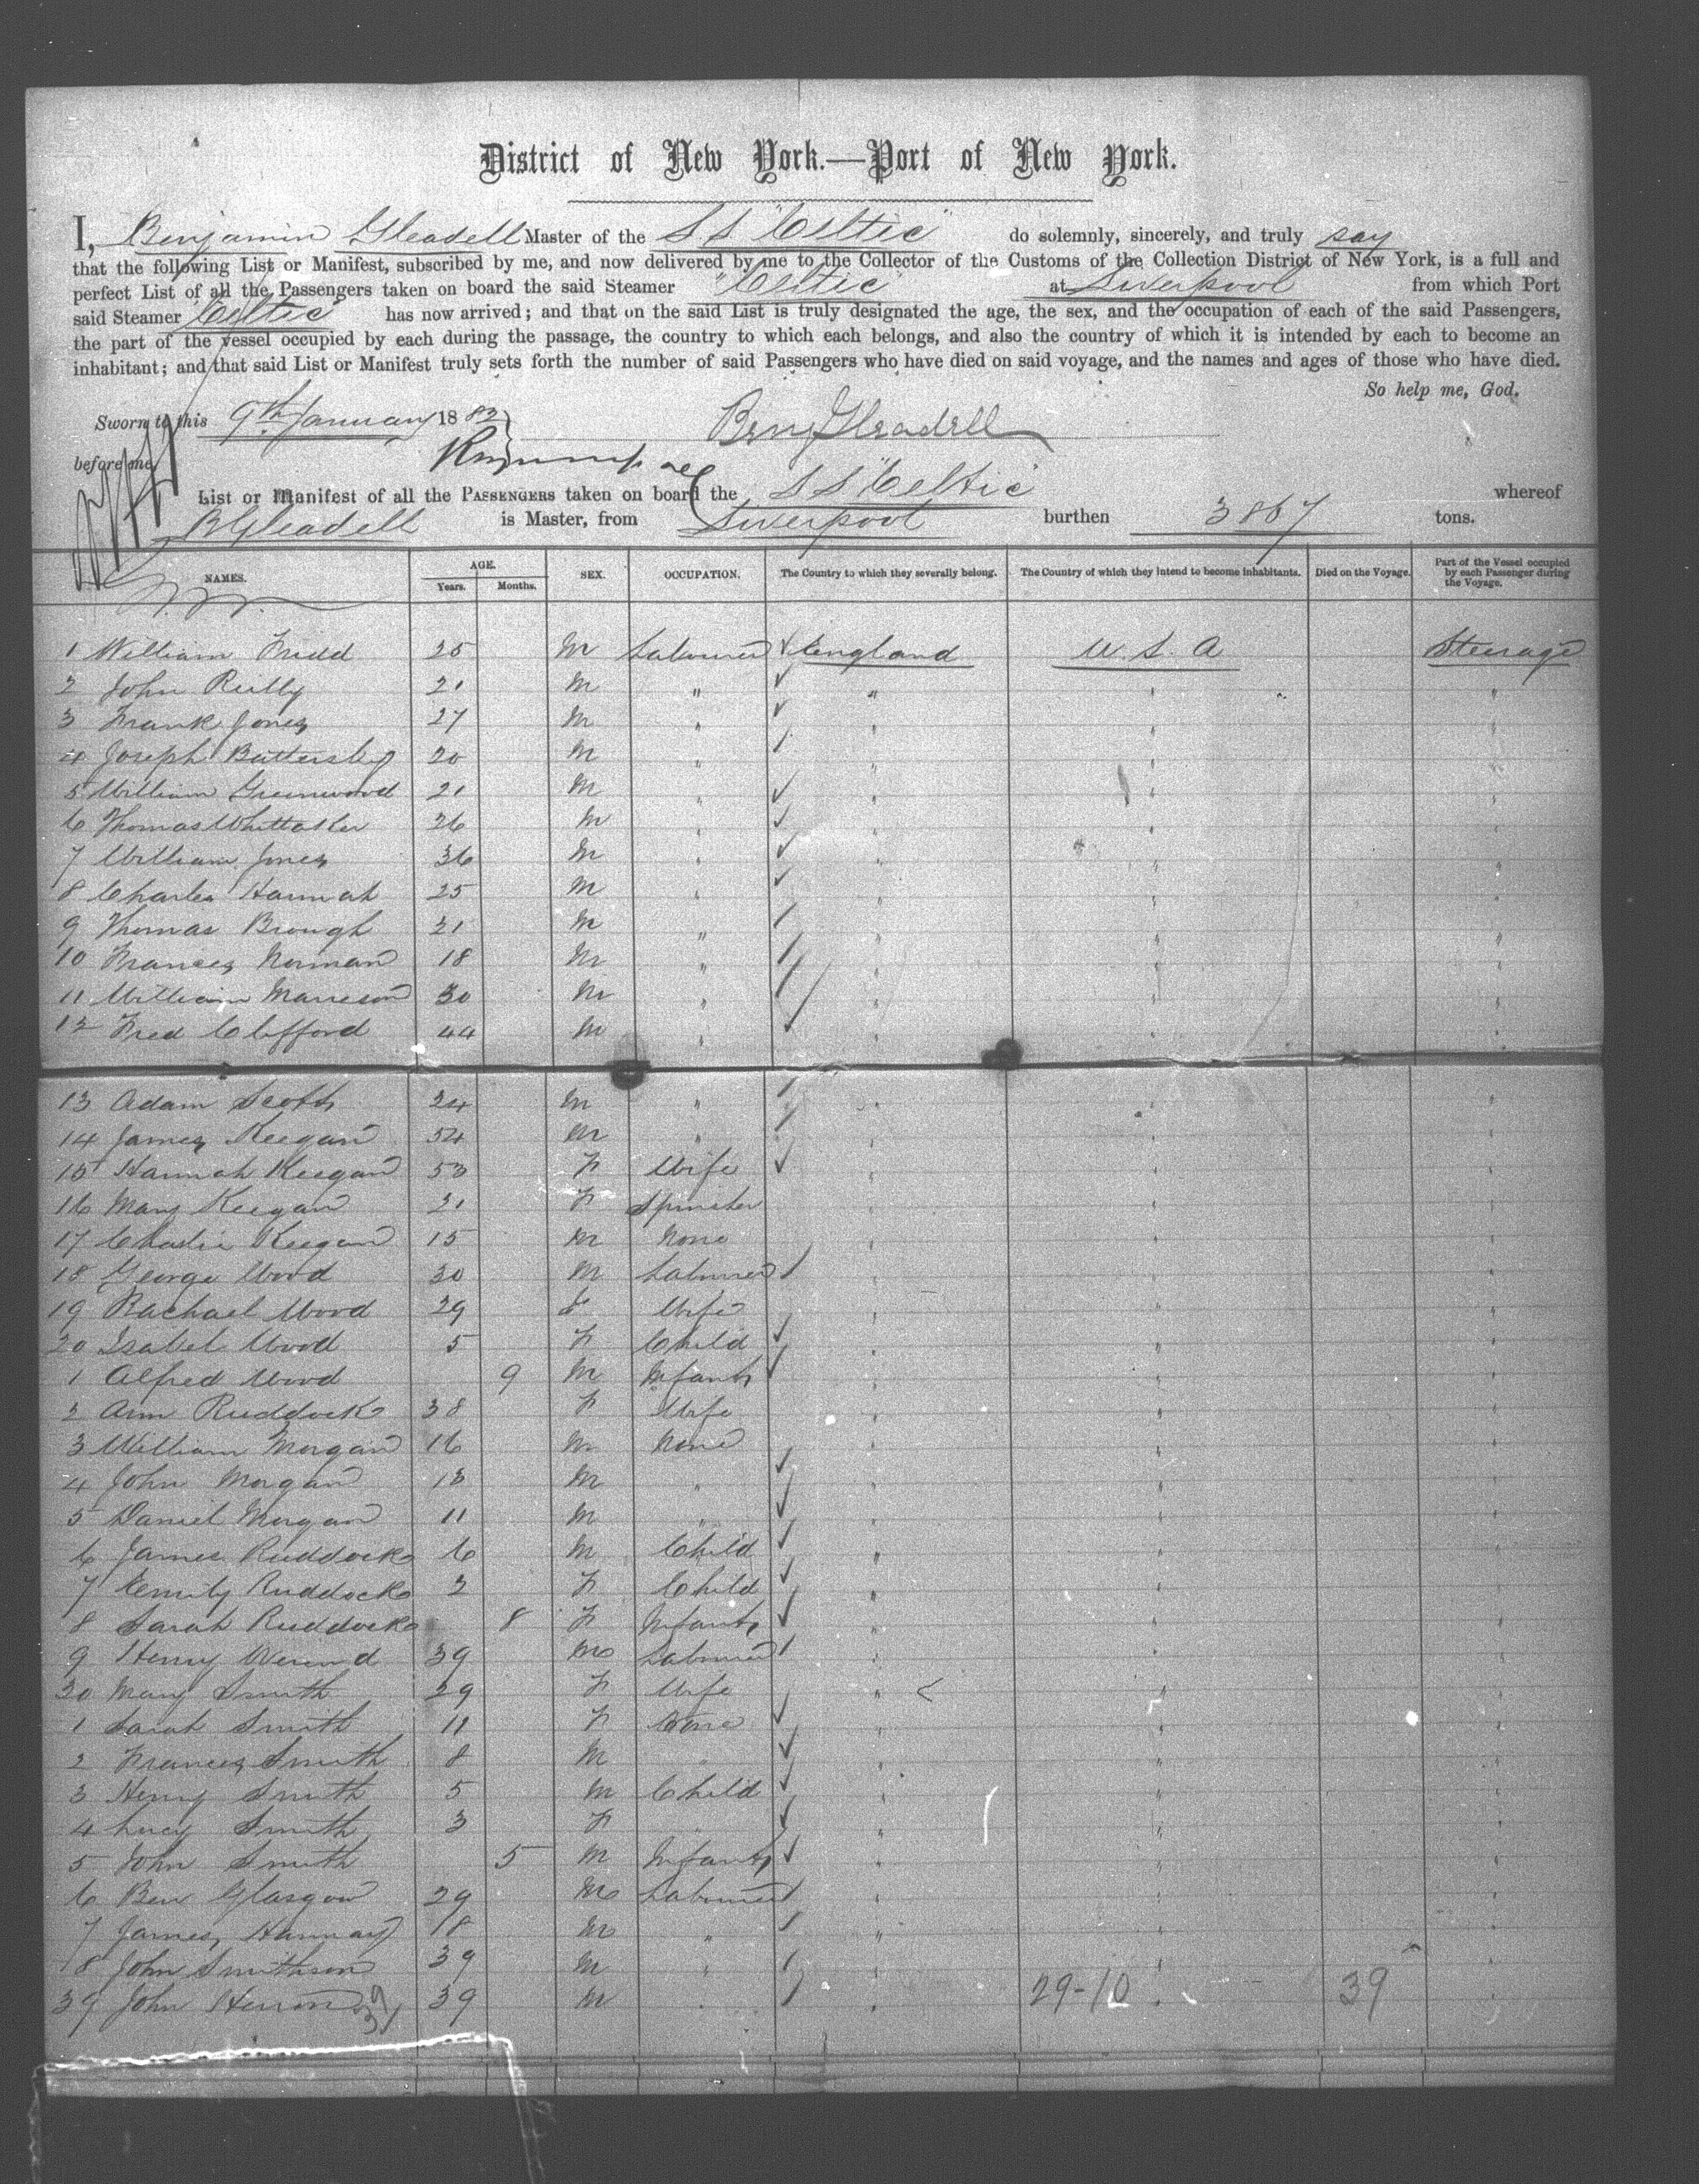 District of New York.—Port of New York.
I, Benjamin Gleadell Master of the SS "Celtic" do solemnly, sincerely, and truly say
that the following List or Manifest, subscribed by me, and now delivered by me to the Collector of the Customs of the Collection District of New York, is a full and
perfect List of all the Passengers taken on board the said Steamer "Celtic" at Liverpool from which Port
said Steamer Celtic has now arrived; and that on the said List is truly designated the age, the sex, and the occupation of each of the said Passengers,
the part of the vessel occupied by each during the passage, the country to which each belongs, and also the country of which it is intended by each to become an
inhabitant; and that said List or Manifest truly sets forth the number of said Passengers who have died on said voyage, and the names and ages of those who have died.
So help me, God.
Sworn to this 9th January 1883 Benj Gleadell
before me
List or Manifest of all the PASSENGERS taken on board the SS "Celtic" whereof
B Gleadell is Master, from Liverpool burthen 3867 tons.
NAMES. AGE. Years. Months. SEX. OCCUPATION. The Country to which they severally belong. The Country of which they intend to become inhabitants. Died on the Voyage. Part of the Vessel occupied by each Passenger during the Voyage.
1 William 25 M Labourer England U.S.A Steerage
2 John Reilly 21 M " " " "
3 Frank Jones 27 M " " " "
4 Joseph Buttersby 20 M " " " "
5 William Greenwood 21 M " " " "
6 Thomas Whittaker 26 M " " " "
7 William Jones 36 M " " " "
8 Charles Hannah 25 M " " " "
9 Thomas Brough 21 M " " " "
10 Frances Norman 18 M " " " "
11 William 30 M " " " "
12 Fred Clifford 44 M " " " "
13 Adam Scott 24 M " " " "
14 James Keegan 54 M " " " "
15 Hannah Keegan 53 F Wife " " "
16 Mary Keegan 21 F Spinster " " "
17 Charlie Keegan 15 M None " " "
18 George Wood 30 M Labourer " " "
19 Rachael Wood 29 F Wife " " "
20 Isabel Wood 5 F Child " " "
1 Alfred Wood 9 M Infant " " "
2 Ann Ruddock 38 F Wife " " "
3 William Morgan 16 M None " " "
4 John Morgan 13 M " " " "
5 Daniel Morgan 11 M " " " "
6 James Ruddock 6 M Child " " "
7 Emily Ruddock 3 F Child " " "
8 Sarah Ruddock 8 F Infant " " "
9 Henry 39 M Labourer " " "
30 Mary Smith 29 F Wife " " "
1 Sarah Smith 11 F None " " "
2 Frances Smith 8 M " " " "
3 Henry Smith 5 M Child " " "
4 Lucy Smith 3 F " " " "
5 John Smith 5 M Infant " " "
6 Ben Glasgow 29 M Labourer " " "
7 James Hannay 18 M " " " "
8 John Smithson 39 M " " " "
39 John Herron 39 M " " 29-10 39 "